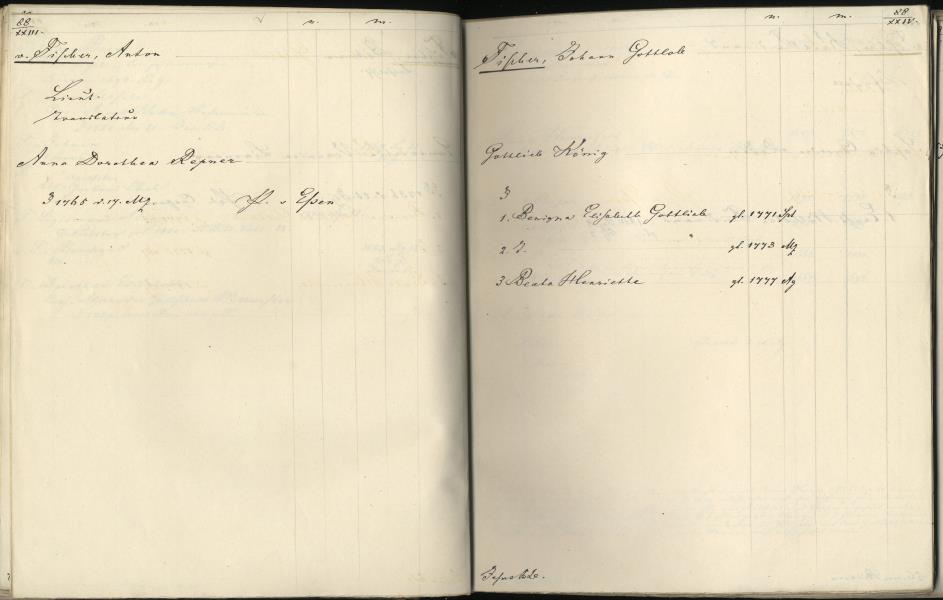 88
XXIII.
n.
m.
v. Fischer, Anton
Lieut.
Translateur
Anna Dorothea Repner
3 1765 d. 17. Mz. P. v Essen
n.
m.
88
XXIV.
Fischer, Johann Gottlob
Gottlieb König
3
1. Benigna Elisabeth Gottlieb gt. 1771 Spt
2. J. gt. 1773 Mz
3 Beata Henriette gt. 1777 Ag